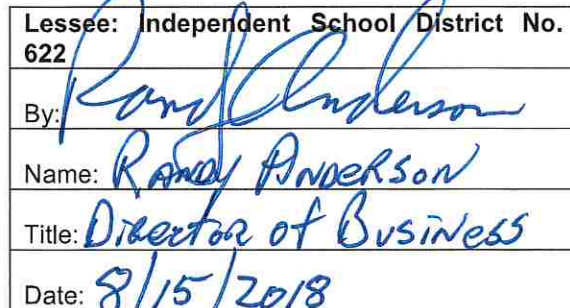 Lessee: Independent School District No.
622
By: Randy Anderson
Name: RANDY ANDERSON
Title: DIRECTOR of BUSINESS
Date: 8/15/2018